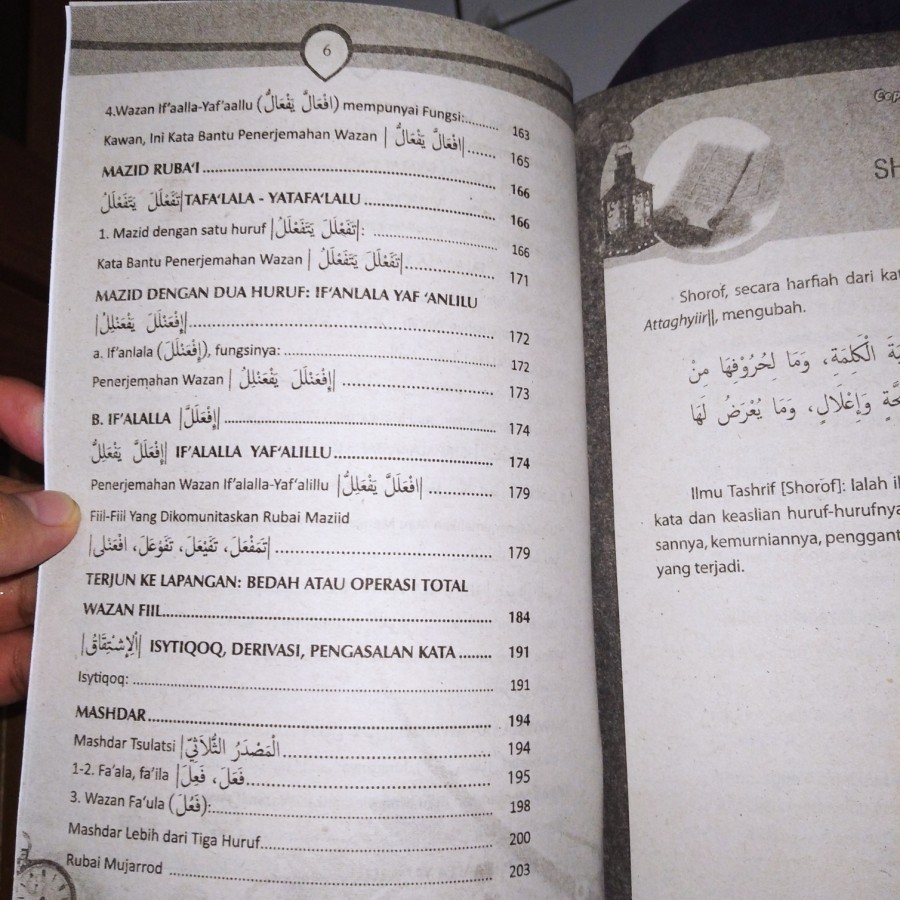 6
4.Wazan If'aalla-Yaf'aallu (افْعَالَّ يَفْعَالُّ) mempunyai Fungsi:......... 163
Kawan, Ini Kata Bantu Penerjemahan Wazan |افْعَالَّ يَفْعَالُّ|....... 165
MAZID RUBA'I.......................................................................... 166
|تَفَعْلَلَ يَتَفَعْلَلُ| TAFA'LALA - YATAFA'LALU ................................ 166
1. Mazid dengan satu huruf |تَفَعْلَلَ يَتَفَعْلَلُ|: ............................... 166
Kata Bantu Penerjemahan Wazan |تَفَعْلَلَ يَتَفَعْلَلُ|...................... 171
MAZID DENGAN DUA HURUF: IF'ANLALA YAF 'ANLILU
|إِفْعَنْلَلَ يَفْعَنْلِلُ|............................................................................ 172
a. If'anlala (إِفْعَنْلَلَ), fungsinya: ................................................... 172
Penerjemahan Wazan |إِفْعَنْلَلَ يَفْعَنْلِلُ| ..................................... 173
B. IF'ALALLA |إِفْعَلَلَّ| ................................................................ 174
|إِفْعَلَلَّ يَفْعَلِلُّ| IF'ALALLA YAF'ALILLU...................................... 174
Penerjemahan Wazan If'alalla-Yaf'alillu |افْعَلَلَّ يَفْعَلِلُّ| ............... 179
Fiil-Fiil Yang Dikomunitaskan Rubai Maziid
|تَمَفْعَلَ، تَفَيْعَلَ، تَفَوْعَلَ، افْعَنْلى| .................................................. 179
TERJUN KE LAPANGAN: BEDAH ATAU OPERASI TOTAL
WAZAN FIIL........................................................................... 184
|اَلْإِشْتِقَاقُ| ISYTIQOQ, DERIVASI, PENGASALAN KATA ........ 191
Isytiqoq: ................................................................................. 191
MASHDAR.............................................................................. 194
Mashdar Tsulatsi |الْمَصْدَرُ الثُّلَاثِيّ............................................... 194
1-2. Fa'ala, fa'ila |فَعَلَ، فَعِلَ...................................................... 195
3. Wazan Fa'ula (فَعُلَ):.............................................................. 198
Mashdar Lebih dari Tiga Huruf................................................. 200
Rubai Mujarrod ....................................................................... 203
SH
Shorof, secara harfiah dari
Attaghyiir||, mengubah.
الْكَلِمَةِ، وَمَا لِحُرُوْفِهَا مِنْ
وَإِعْلَالٍ، وَمَا يُعْرَضُ لَهَا
Ilmu Tashrif [Shorof]: Ialah
kata dan keaslian huruf-hurufnya
sannya, kemurniannya,
yang terjadi.